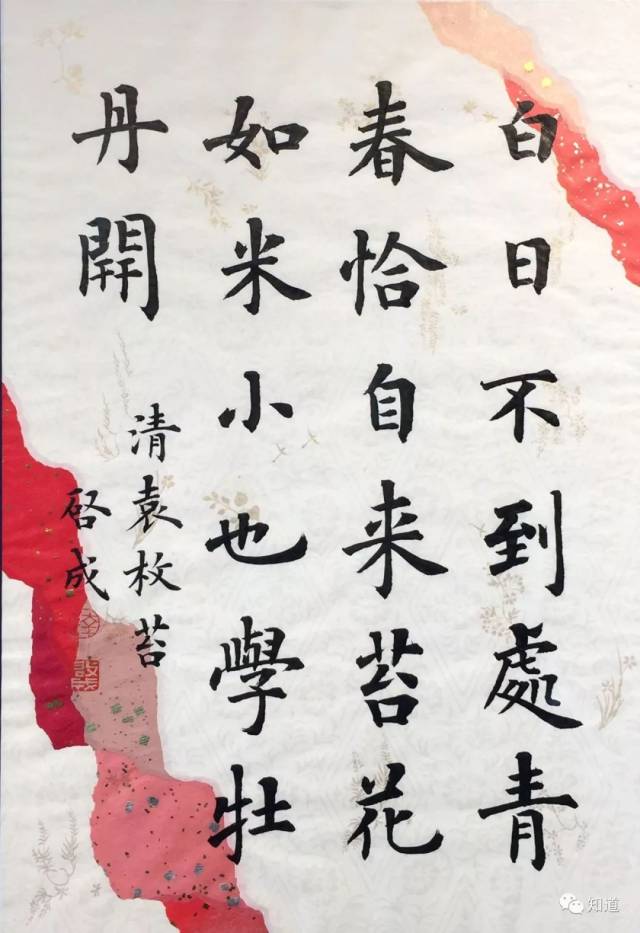 白日不到處青
春恰自来苔花
如米小也學牡
丹開
清袁枚苔
啓成
知道